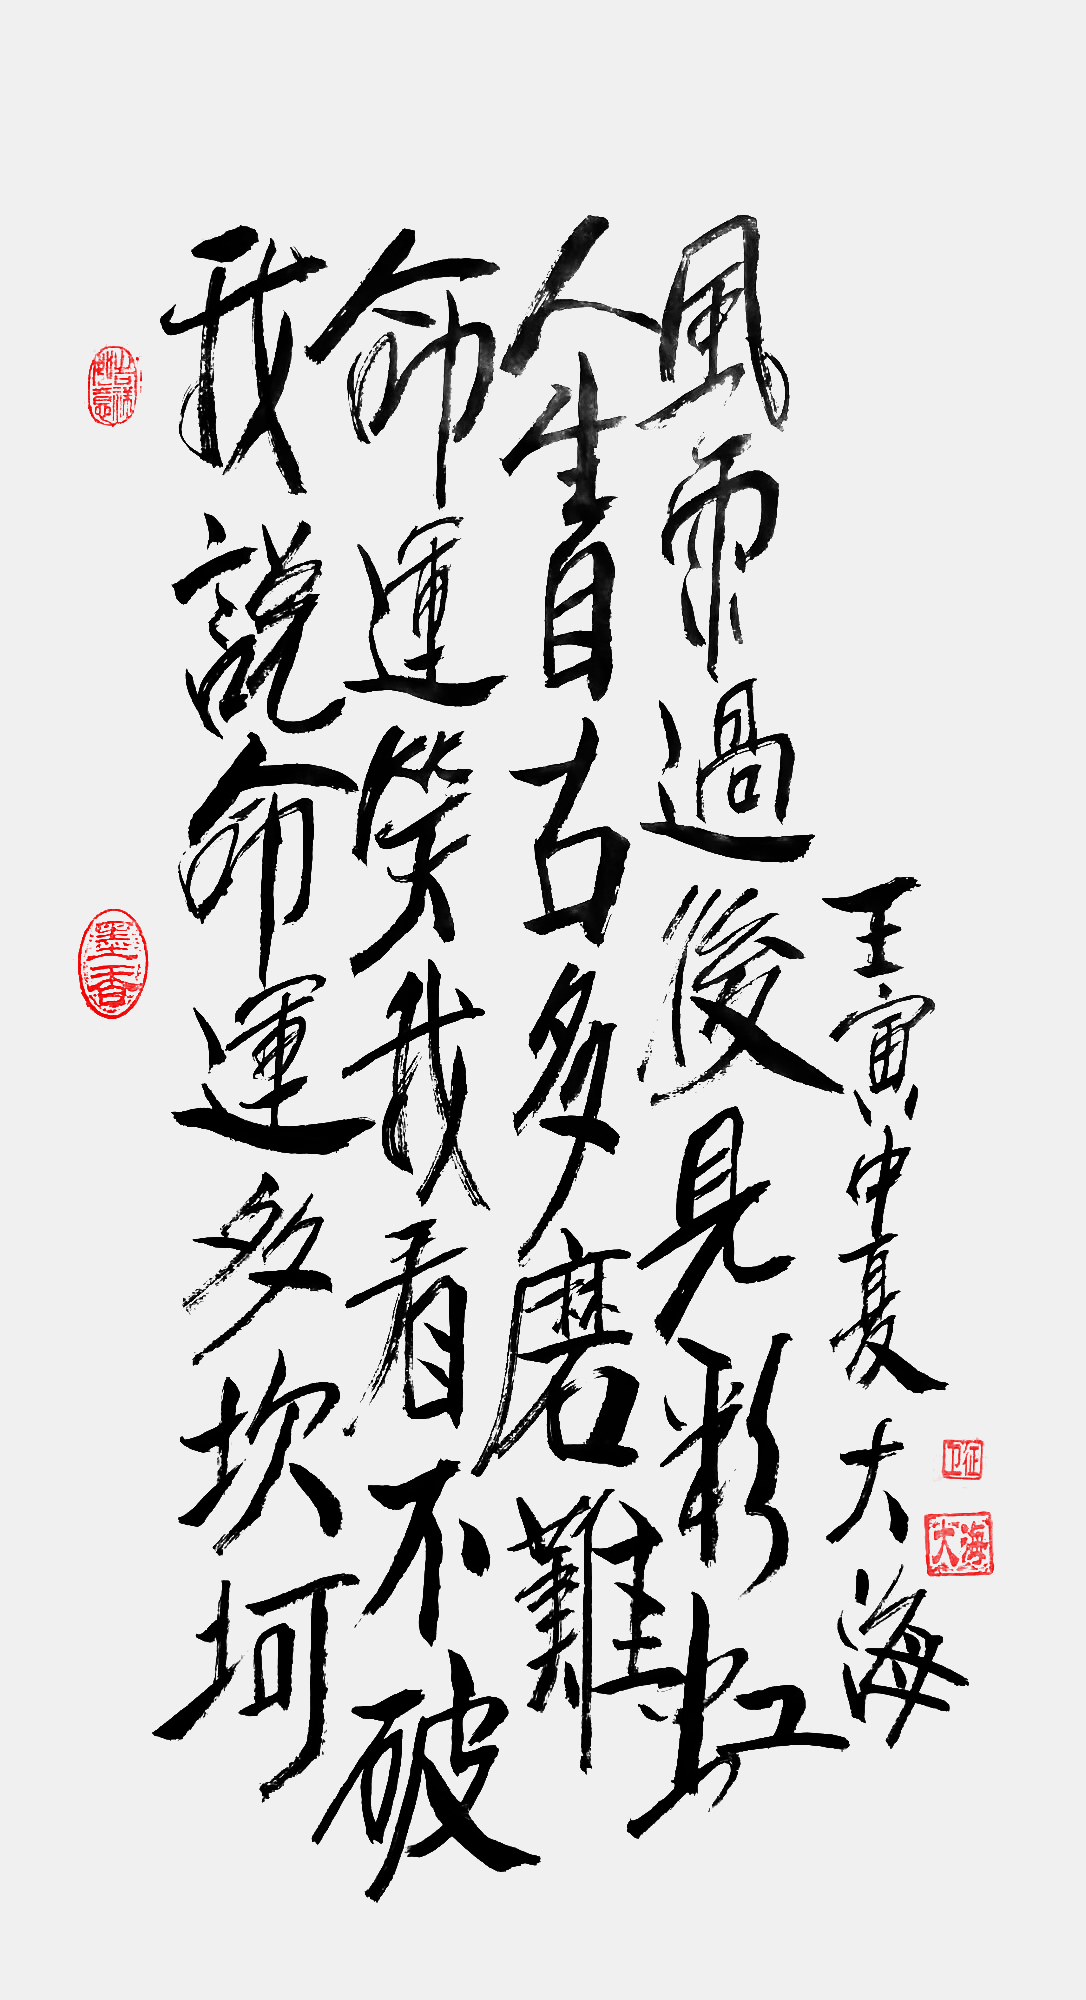 我說命運多坎坷
命運笑我看不破
人生自古多磨難
風雨過後見彩虹
壬寅中夏大海
吉祥如意
墨香
卫征
大海